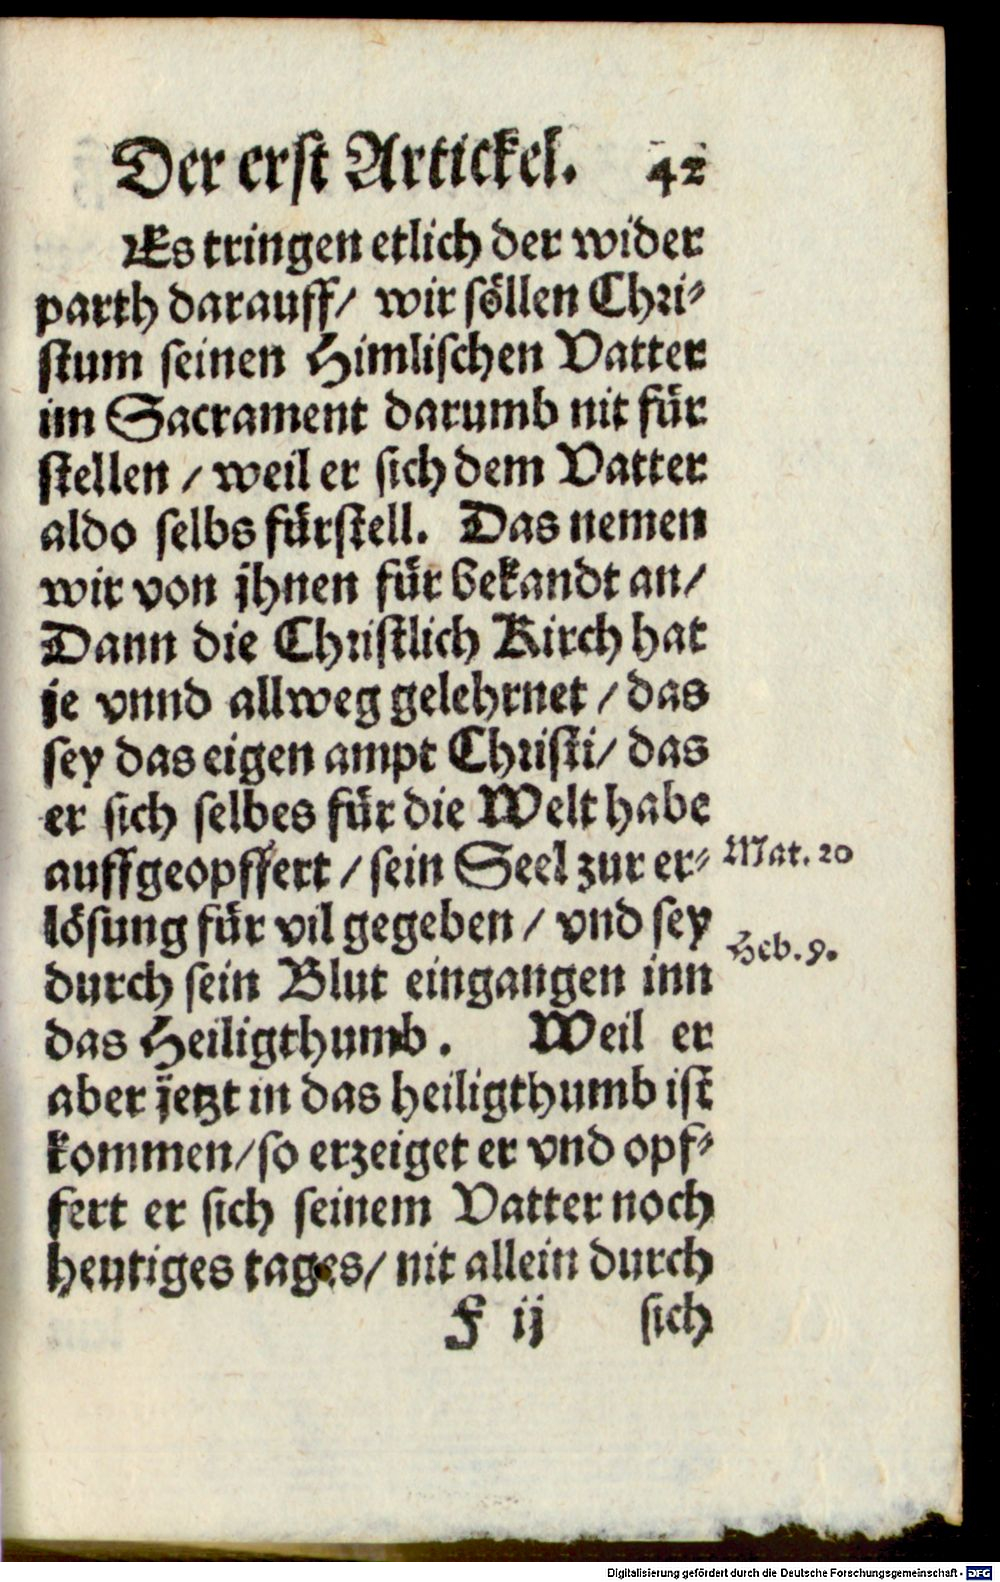 Der erst Artickel. 42
Es tringen etlich der wider
parth darauff/ wir söllen Chri⸗
stum seinen Himlischen Vatter
im Sacrament darumb nit für
stellen / weil er sich dem Vatter
aldo selbs fürstell. Das nemen
wir von jhnen für bekandt an/
Dann die Christlich Kirch hat
je vnnd allweg gelehrnet / das
sey das eigen ampt Christi/ das
er sich selbes für die Welt habe
auffgeopffert / sein Seel zur er⸗ Mat. 20
lösung für vil gegeben / vnd sey
durch sein Blut eingangen inn Heb. 9.
das Heiligthumb. Weil er
aber jetzt in das heiligthumb ist
kommen/ so erzeiget er vnd opf⸗
fert er sich seinem Vatter noch
heutiges tages/ nit allein durch
F ij sich
Digitalisierung gefördert durch die Deutsche Forschungsgemeinschaft - DFG